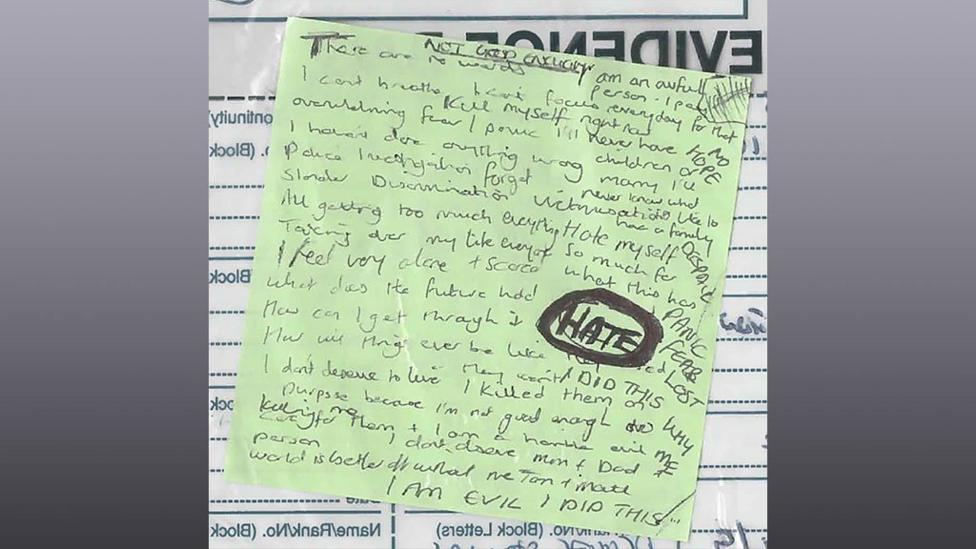 EVIDENCE
NOT GOOD ENOUGH
There are no words I am an awful
person. I pay
I can't breathe I can't focus every day for that
Kill myself right now NO
overwhelming fear / panic I'll never have HOPE
children or
I haven't done anything wrong marry I'll
never know what
Police Investigation forget it's like to
have a family
Slander Discrimination Victimisation
All getting too much everything Hate myself DESPAIR
so much for
Taking over my life everyone what this has
I feel very alone + scared
what does the future hold PANIC
How can I get through it HATE FEAR
How will things ever be like LOST
they won't I DID THIS
I don't deserve to live I killed them on WHY
purpose because I'm not good enough to ME
care for them + I am a horrible evil
Killing me
person I don't deserve Mum + Dad +
world is better off without me
I AM EVIL I DID THIS
(Continuity)
No. (Block)
No. (Block)
(Block
(Block
Name/Rank/No. (Block)
Rank/No. (Block Letters)
Date